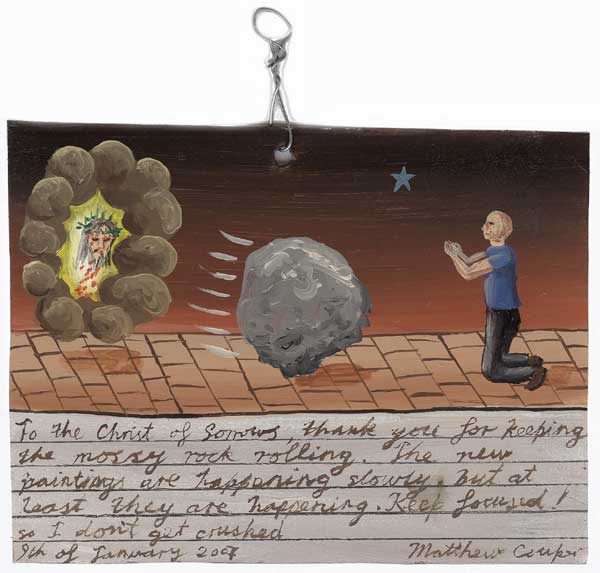 To the Christ of Sorrows, thank you for keeping
the mossy rock rolling. The new
paintings are happening slowly, but at
least they are happening. Keep focused!
so I don't get crushed
9th of January 2007 Matthew Couper